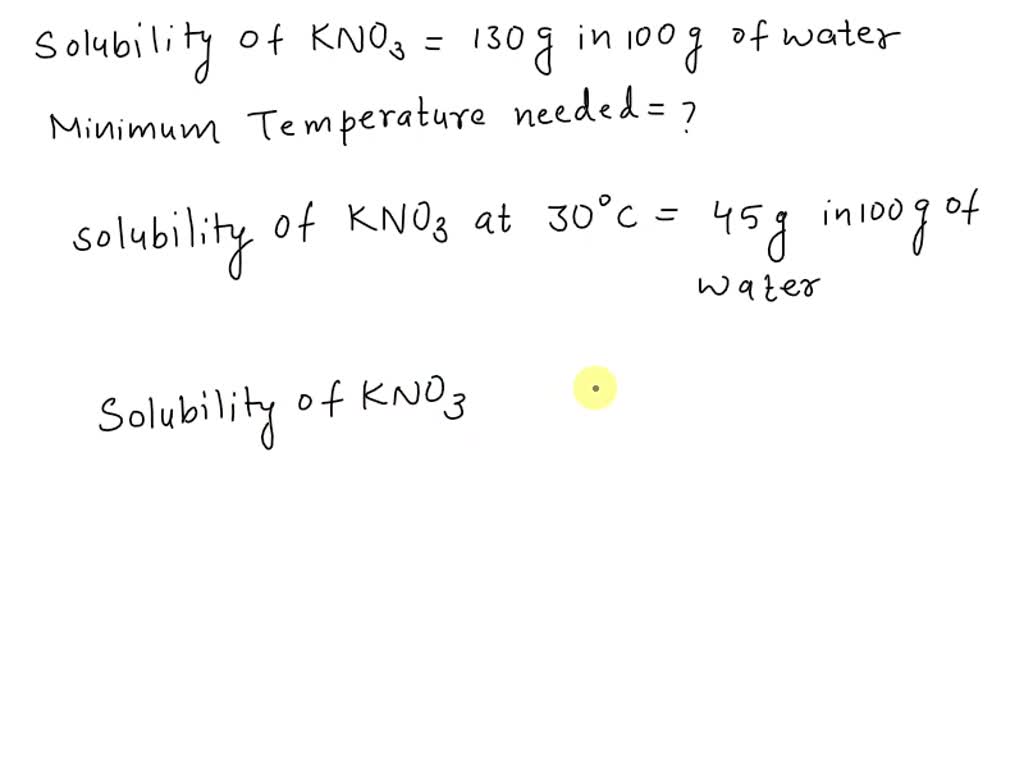 Solubility of KNO₃ = 130g in 100g of water
Minimum Temperature needed = ?
solubility of KNO₃ at 30°C = 45g in 100g of
water
Solubility of KNO₃